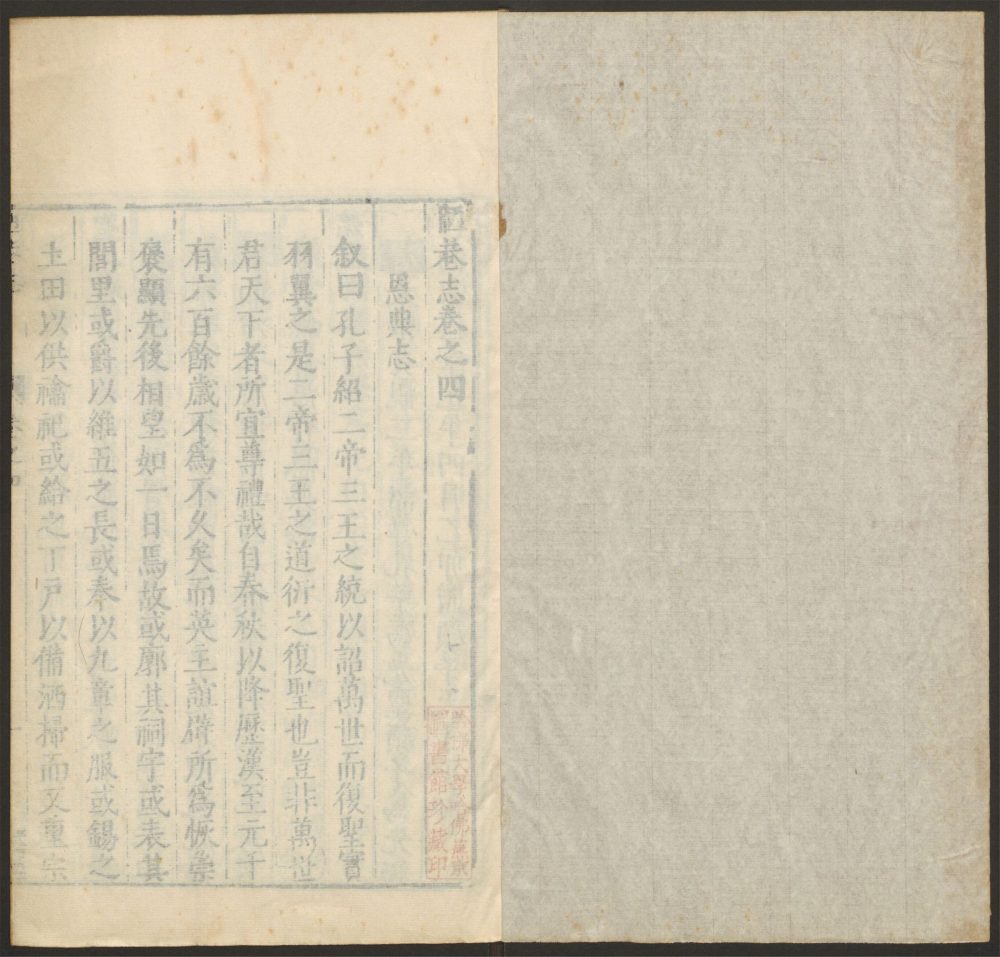 陋巷志卷之四
恩典志
叙曰孔子紹二帝三王之統以詔萬世而復聖實
羽翼之是二帝三王之道衍之復聖也豈非萬世
君天下者所宜尊禮哉自春秋以降歷漢至元千
有六百餘歲不為不久矣而英主誼辟所為恢崇
褒顯先後相望如一日焉故或廓其祠宇或表其
閭里或爵以雜五之長或奉以九章之服或錫之
土田以供禴祀或給之丁戶以備洒掃而又重宗
書館珍藏印